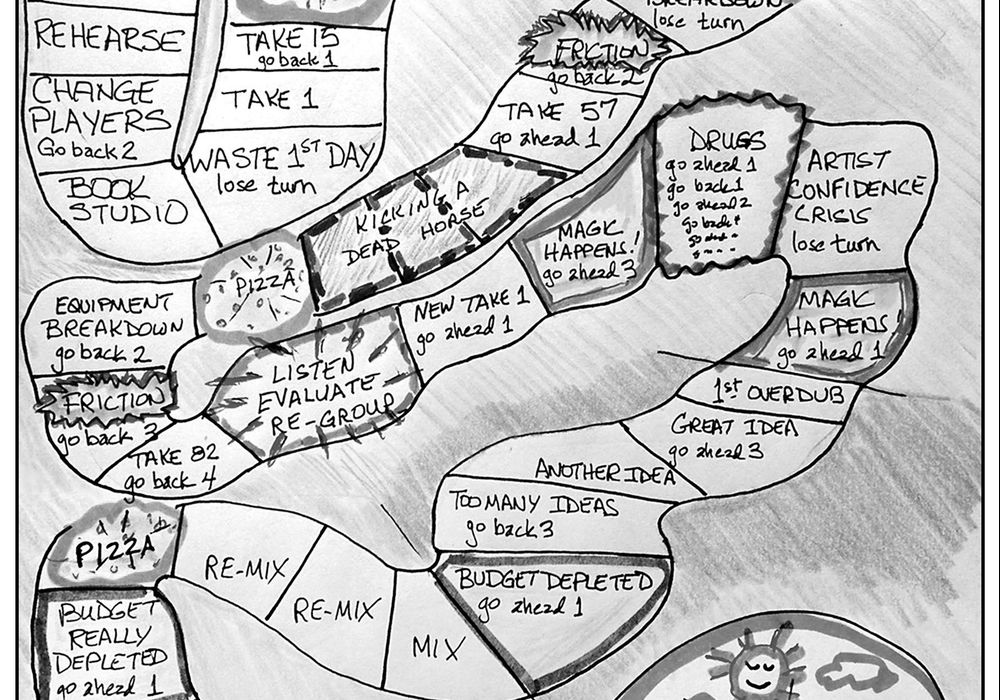 REHEARSE
CHANGE
PLAYERS
Go back 2
BOOK
STUDIO
TAKE 15
go back 1
TAKE 1
WASTE 1ST DAY
lose turn
BREAKDOWN
lose turn
FRICTION
go back 2
TAKE 57
go ahead 1
KICKING A
DEAD HORSE
PIZZA
EQUIPMENT
BREAKDOWN
go back 2
FRICTION
go back 3
TAKE 82
go back 4
LISTEN
EVALUATE
RE-GROUP
NEW TAKE 1
go ahead 1
MAGIC
HAPPENS!
go ahead 3
DRUGS
go ahead 1
go back 1
go ahead 2
go back
ARTIST
CONFIDENCE
CRISIS
lose turn
MAGIC
HAPPENS!
go ahead 1
1st OVERDUB
GREAT IDEA
go ahead 3
ANOTHER IDEA
TOO MANY IDEAS
go back 3
BUDGET DEPLETED
go ahead 1
MIX
RE-MIX
RE-MIX
PIZZA
BUDGET
REALLY
DEPLETED
go ahead 1